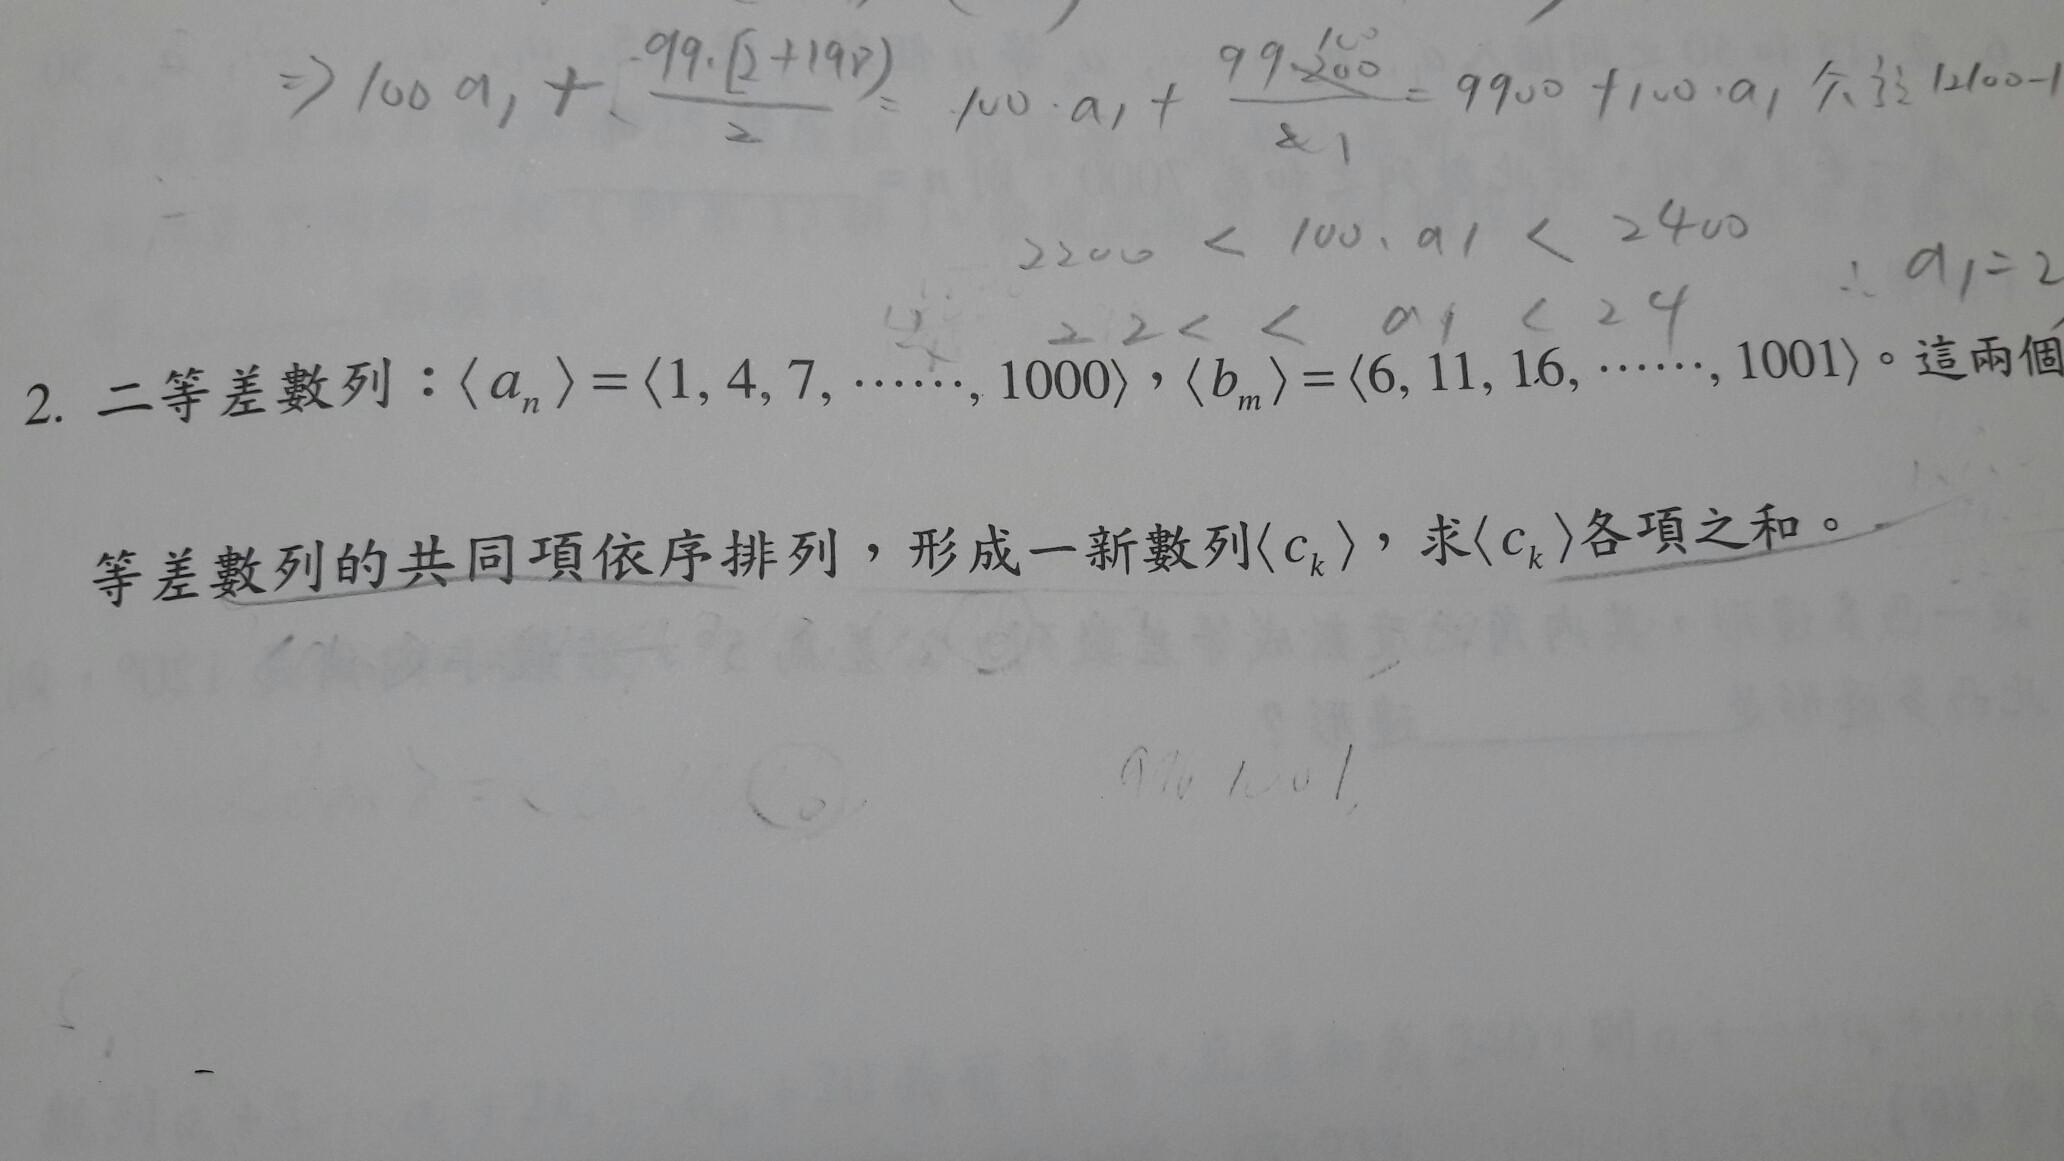 ⇒ 100a₁ + 99·[2+198)/2 = 100·a₁ + 99·200/2 100 1 = 9900 + 100·a₁ 介於 12100-1
2200 < 100·a₁ < 2400
22 < < a₁ < 24 ∴ a₁=2
2. 二等差數列：⟨aₙ⟩=⟨1, 4, 7, ……, 1000⟩，⟨bₘ⟩=⟨6, 11, 16, ……, 1001⟩。這兩個
等差數列的共同項依序排列，形成一新數列⟨cₖ⟩，求⟨cₖ⟩各項之和。
1001